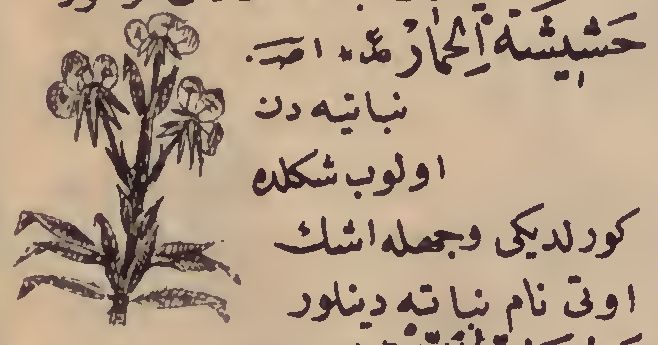 حَشِيشَةُ اَلْحِمَارْ
نباتيه دن
اولوب شكلده
كورلديكى وجهله اشك
اوتى نام نباته دينلور